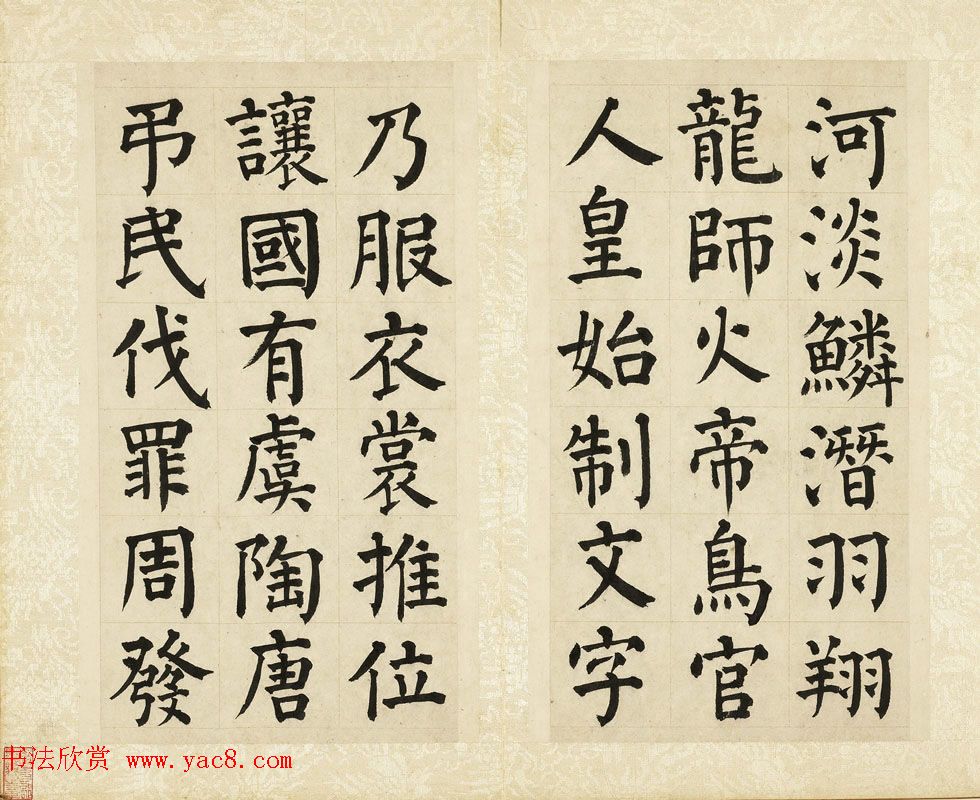 河淡鱗潛羽翔
龍師火帝鳥官
人皇始制文字
乃服衣裳推位
讓國有虞陶唐
弔民伐罪周發
书法欣赏 www.yac8.com